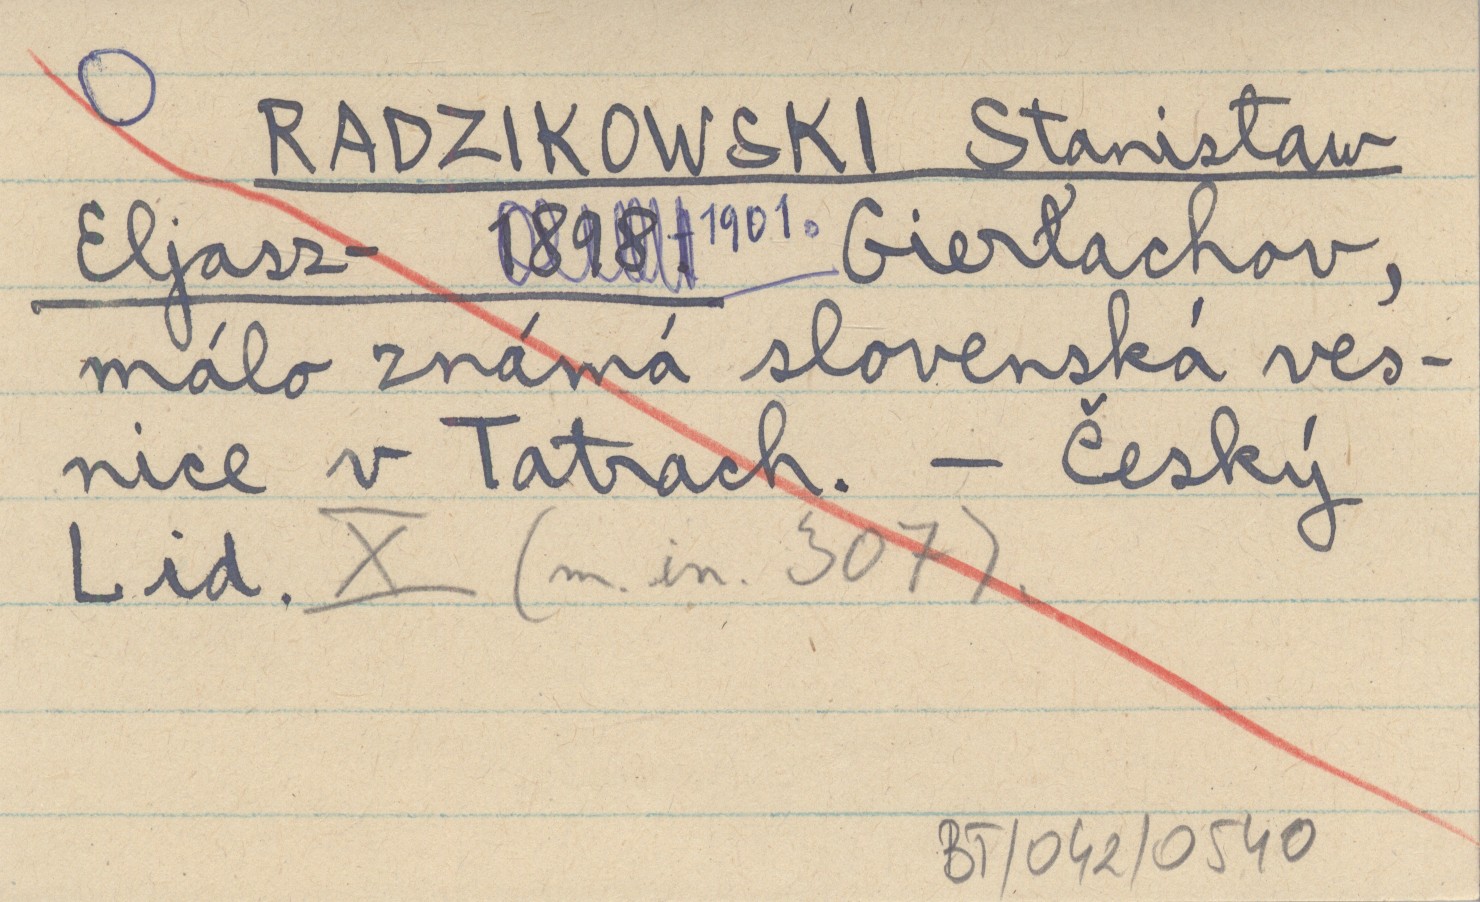 RADZIKOWSKI Stanisław
Eljasz- 1898. 1901. Gierłachov,
málo známá slovenská ves-
nice v Tatrach. — Český
Lid. X (m. in. 307).
BT/042/0540